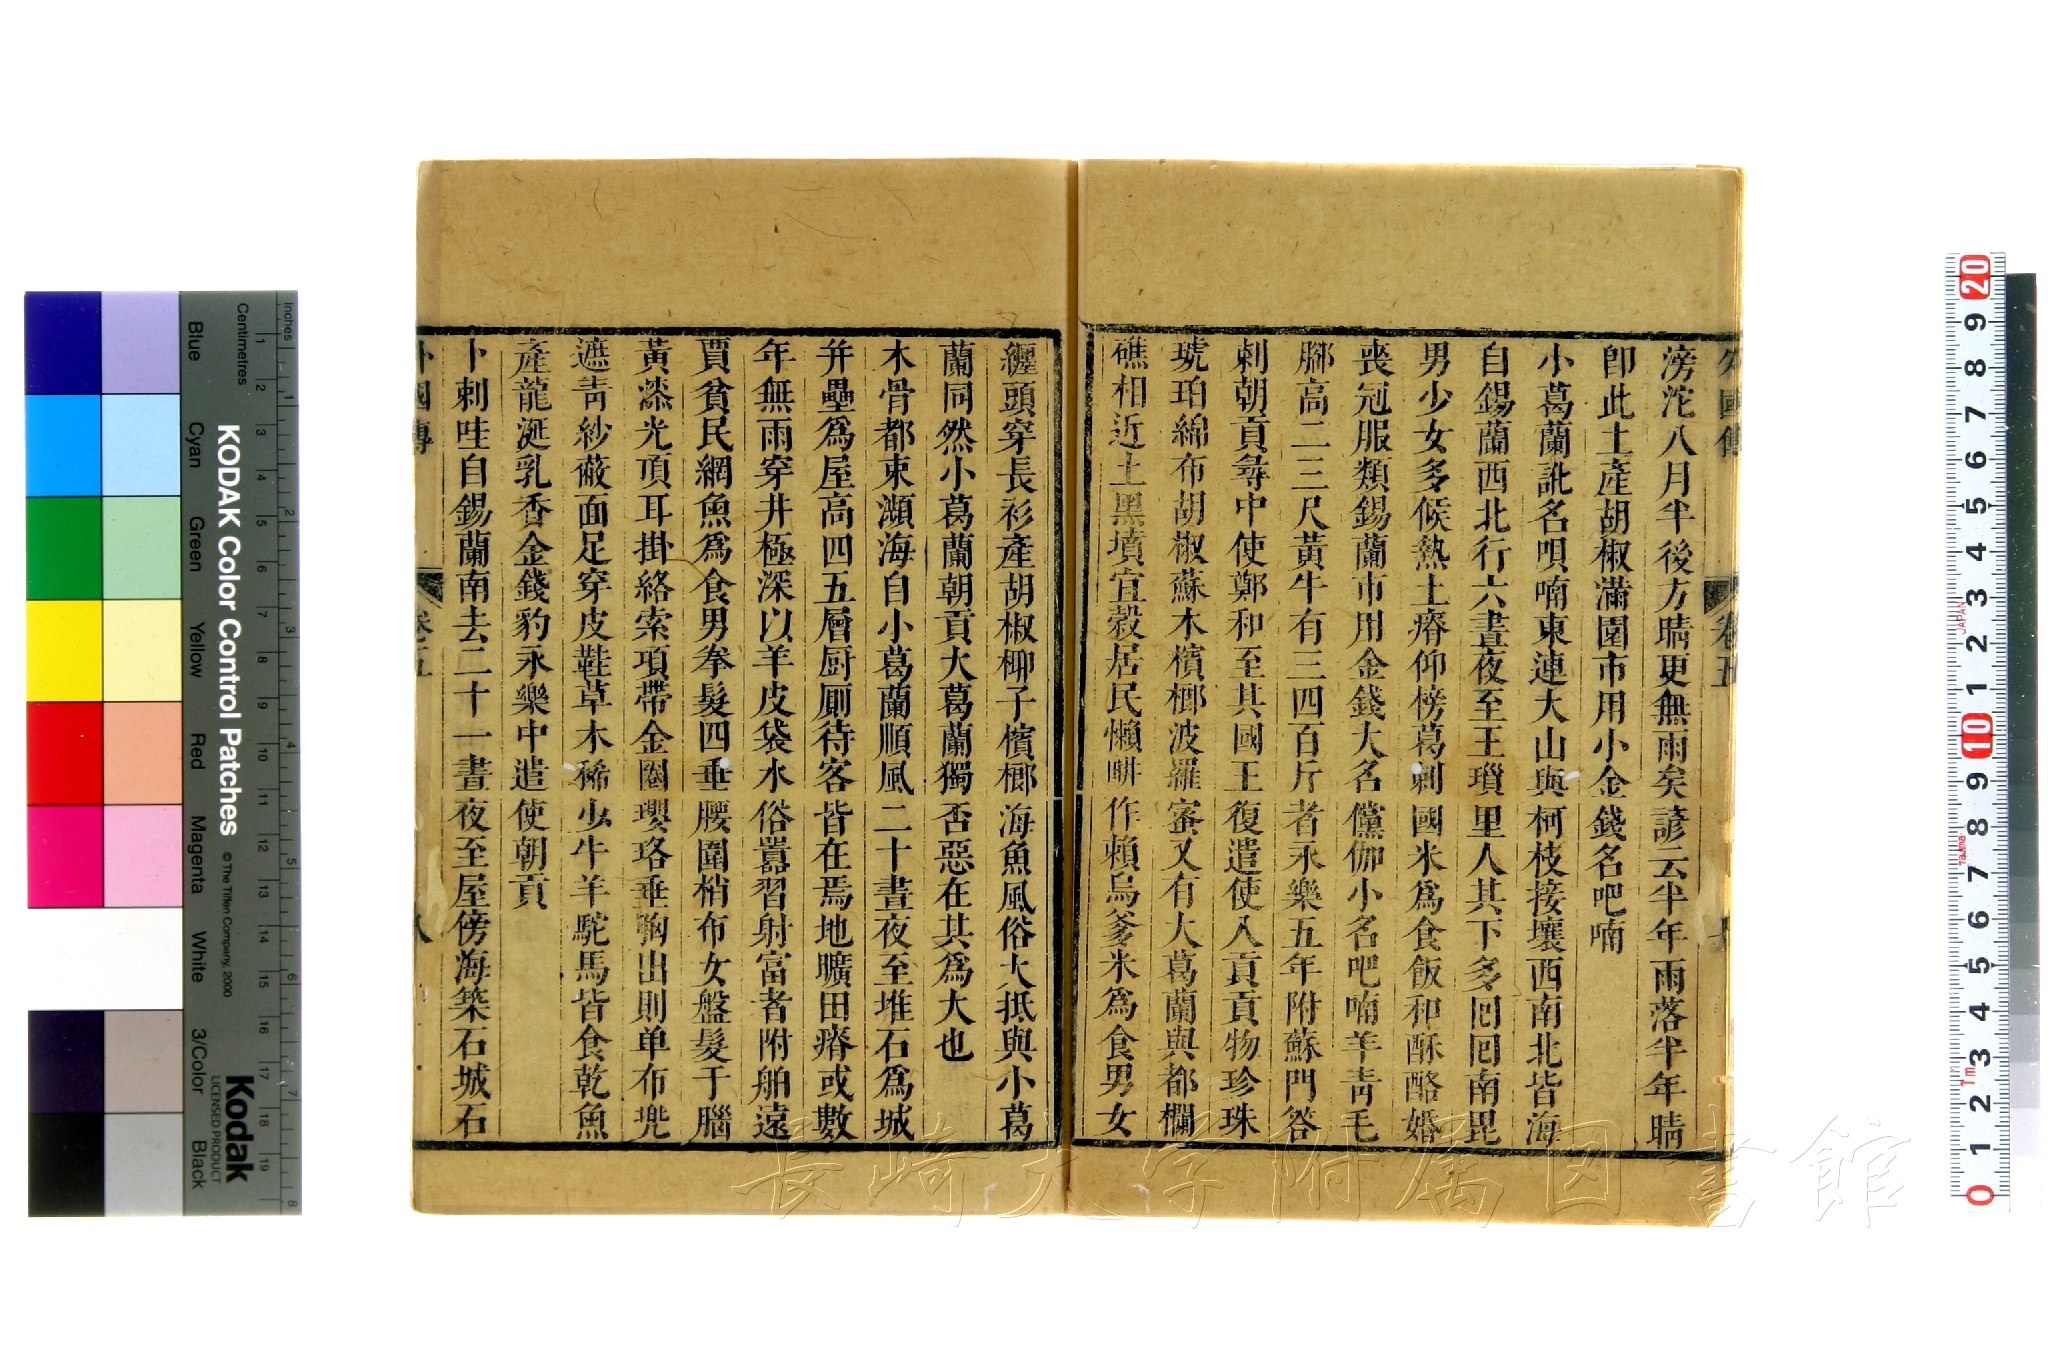 外國傳
卷五
滂沱八月半後方晴更無雨矣諺云半年雨落半年晴
卽此土產胡椒滿園市用小金錢名吧喃
小葛蘭訛名唄喃東連大山與柯枝接壤西南北皆海
自錫蘭西北行六晝夜至王瑣里人其下多囘囘南毘
男少女多候熱土瘠仰榜葛剌國米爲食飯和酥酪婚
喪冠服類錫蘭市用金錢大名儻伽小名吧喃羊靑毛
脚高二三尺黃牛有三四百斤者永樂五年附蘇門答
剌朝貢尋中使鄭和至其國王復遣使入貢貢物珍珠
琥珀綿布胡椒蘇木檳榔波羅蜜又有大葛蘭與都欄
礁相近土黑墳宜穀居民懶畊作賴烏爹米爲食男女
纏頭穿長衫產胡椒椰子檳榔海魚風俗大抵與小葛
蘭同然小葛蘭朝貢大葛蘭獨否惡在其爲大也
木骨都束瀕海自小葛蘭順風二十晝夜至堆石爲城
幷壘爲屋高四五層厨厠待客皆在焉地曠田瘠或數
年無雨穿井極深以羊皮袋水俗囂習射富者附舶遠
賈貧民網魚爲食男拳髮四垂腰圍梢布女盤髮于腦
黃漆光頂耳掛絡索項帶金圈瓔珞垂胸出則单布兜
遮靑紗蔽面足穿皮鞋草木稀少牛羊駝馬皆食乾魚
產龍涎乳香金錢豹永樂中遣使朝貢
卜剌哇自錫蘭南去二十一晝夜至屋傍海築石城石
外國傳
卷五
八
長崎大学附属図書館
KODAK Color Control Patches
© The Tiffen Company, 2000
Kodak
LICENSED PRODUCT
Inches
Centimetres
Blue
Cyan
Green
Yellow
Red
Magenta
White
3/Color
Black
1 2 3 4 5 6 7 8 9 10 11 12 13 14 15 16 17 18 19
1 2 3 4 5 6 7 8
20 9 8 7 6 5 4 3 2 1 10 9 8 7 6 5 4 3 2 1 0
JAPAN